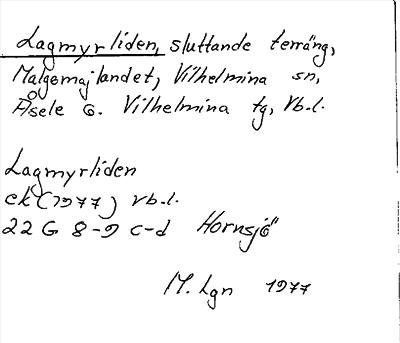 Lagmyrliden, sluttande terräng,
Malgomajlandet, Vilhelmina sn,
Åsele o. Vilhelmina tg, Vb.l.
Lagmyrliden
ek (1977) Vb.l.
22 G 8-9 c-d Hornsjö
M. Lgn 1977